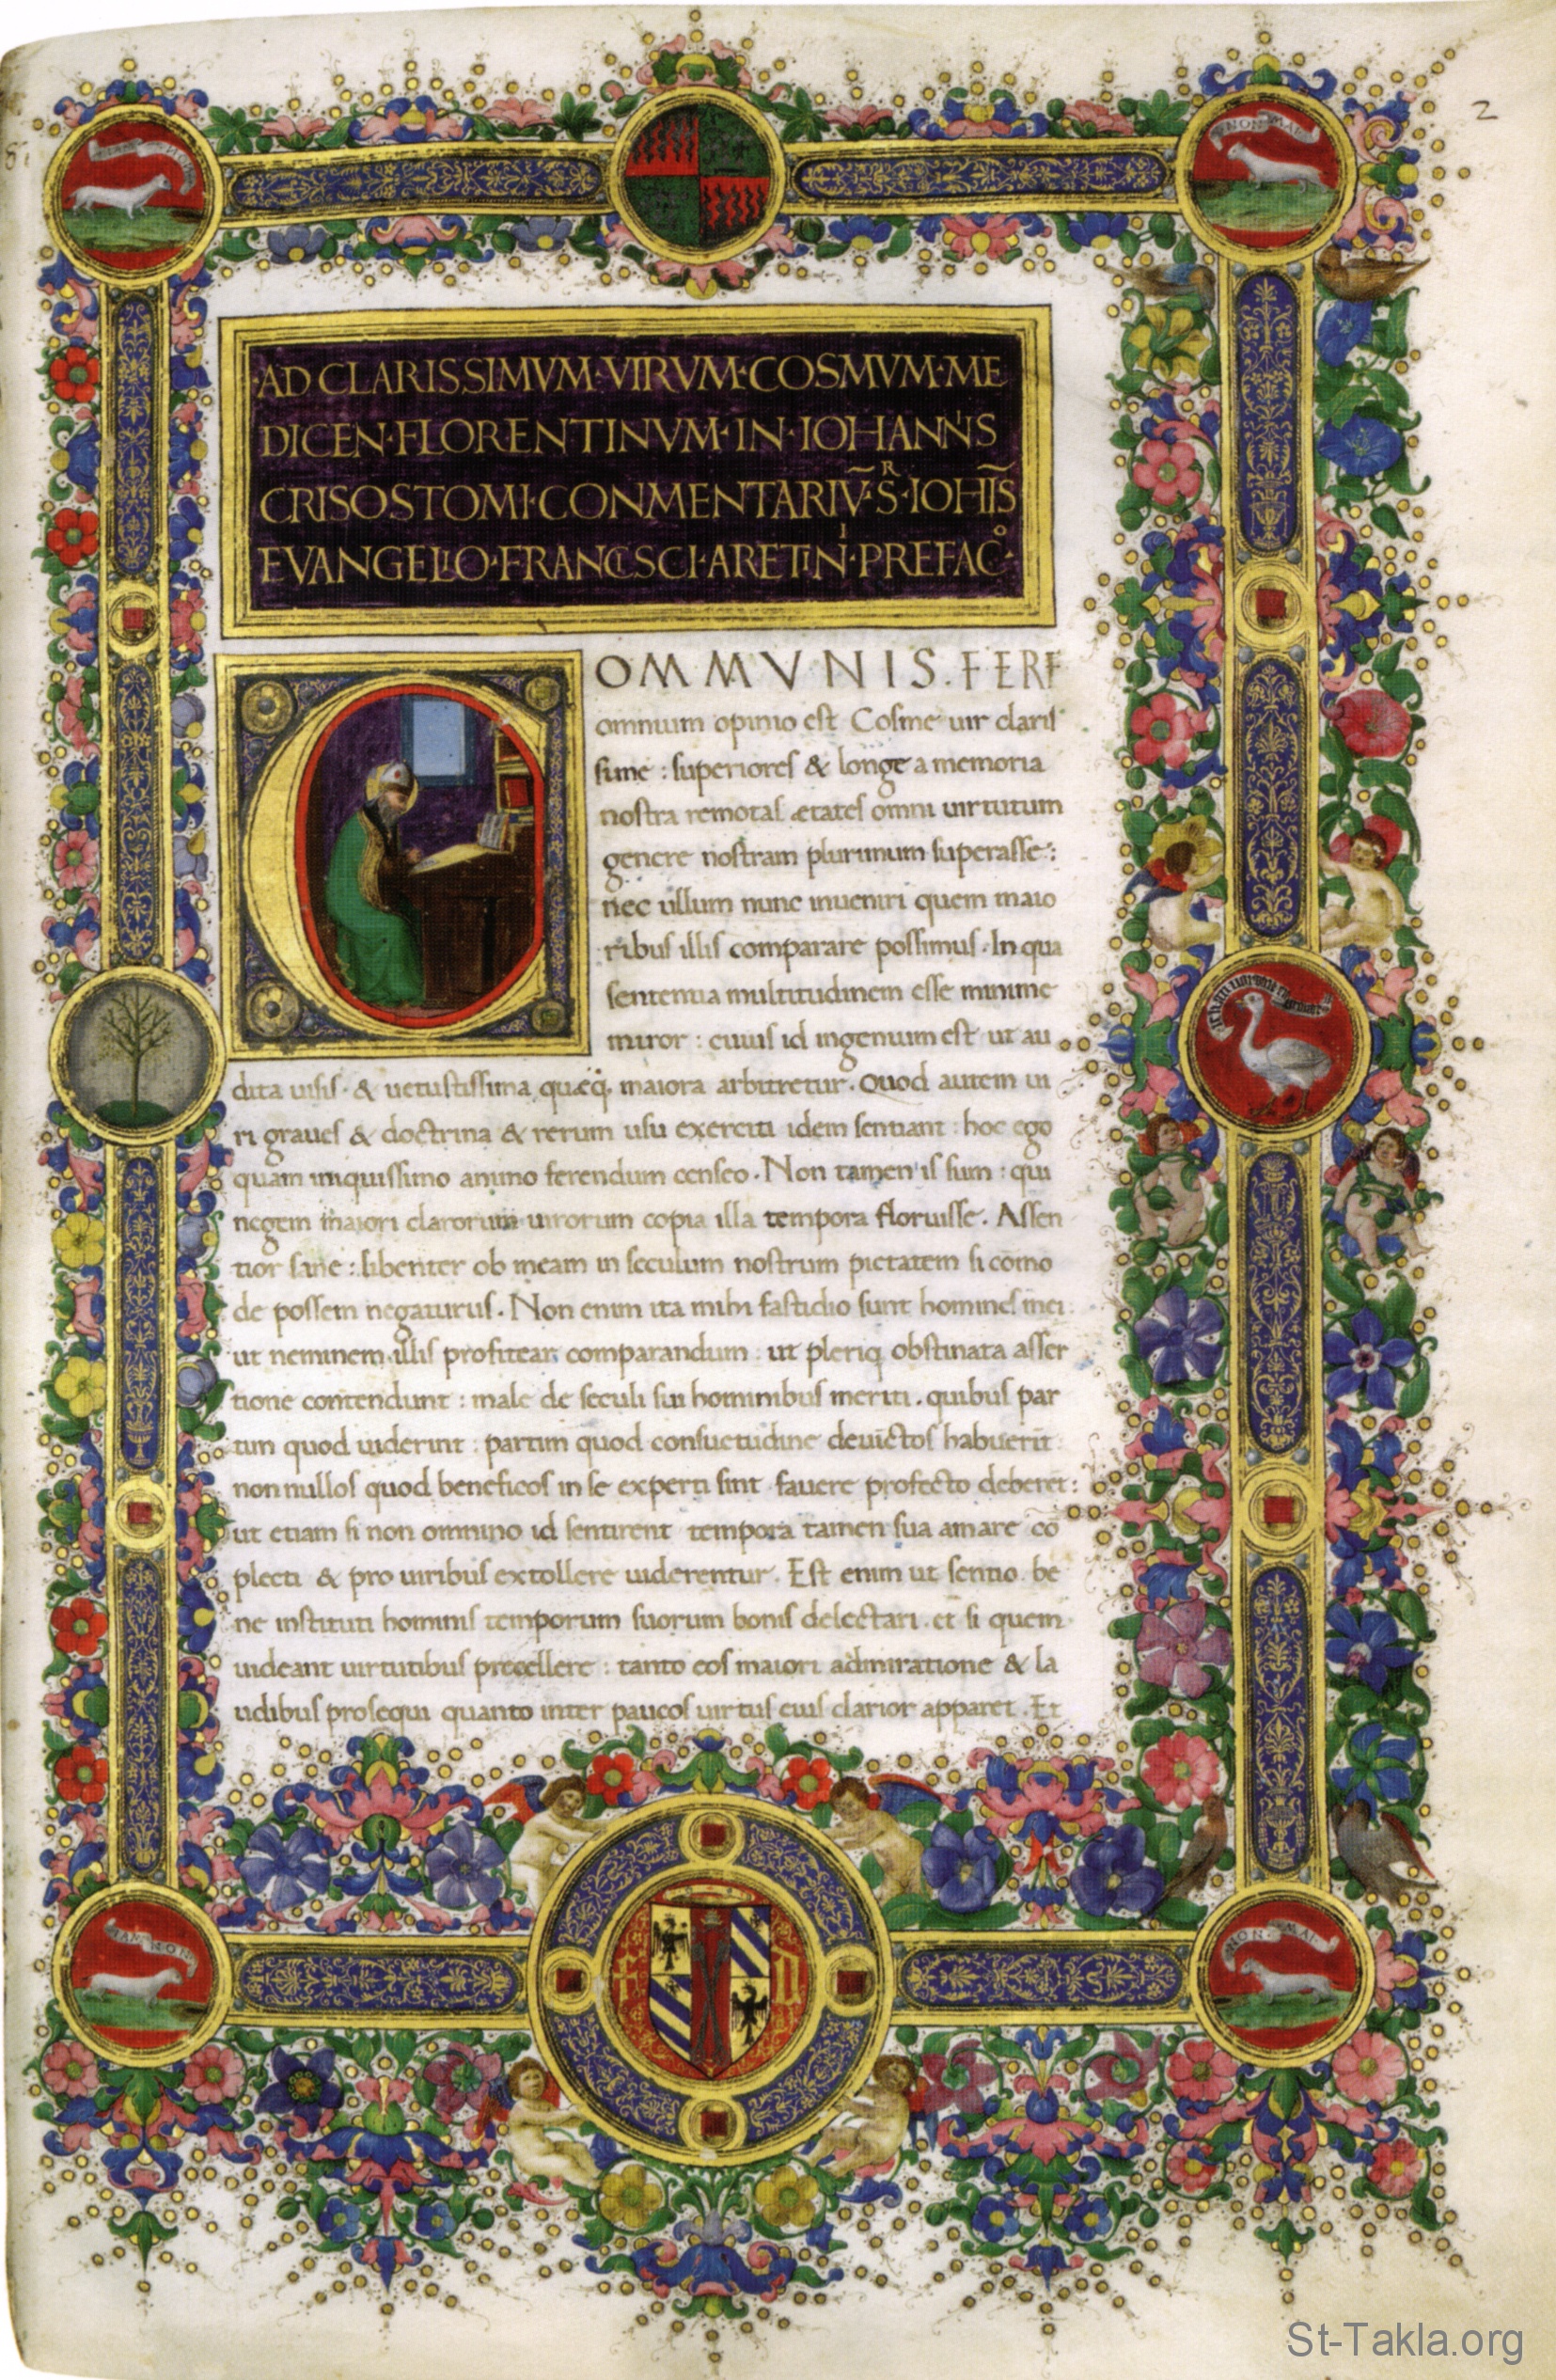 2
NON MAI
NON MAI
·AD CLARISSIMVM·VIRVM·COSMVM·ME
DICEN·FLORENTINVM·IN·IOHANNIS
CRISOSTOMI·CONMENTARIV̄·SR·IOHIS̄
EVANGELIO·FRANCISCI·ARETINI·PREFACo·
COMMVNIS. FERE
omnium opinio est Cosme uir claris
sime : superiores & longe a memoria
nostra remotas ætates omni uirtutum
genere nostram plurimum superasse :
nec ullum nunc inueniri quem maio
ribus illis comparare possimus. In qua
sententia multitudinem esse minime
miror : cuius id ingenium est ut au
dita uisis. & uetustissima quæq. maiora arbitretur. Quod autem ui
ri graues & doctrina & rerum usu exerciti idem sentiant : hoc ego
quam iniquissimo animo ferendum censeo. Non tamen is sum : qui
negem maiori clarorum uirorum copia illa tempora floruisse. Assen
tior sane : libenter ob meam in seculum nostrum pietatem si cōmo
de possem negaturus. Non enim ita mihi fastidio sunt homines mei
ut neminem illis profitear comparandum : ut pleriq obstinata asser
tione contendunt : male de seculi sui hominibus meriti. quibus par
tim quod uiderint : partim quod consuetudine deuictos habuerīt
non nullos quod beneficos in se experti sint fauere profecto deberēt :
ut etiam si non omnino id sentirent tempora tamen sua amare cō
plecti & pro uiribus extollere uiderentur. Est enim ut sentio. be
ne instituti hominis temporum suorum bonis delectari. et si quem
uideant uirtutibus precellere : tanto eos maiori admiratione & la
udibus prosequi quanto inter paucos uirtus eius clarior apparet. Et
IAM NON
NON MAI
St-Takla.org